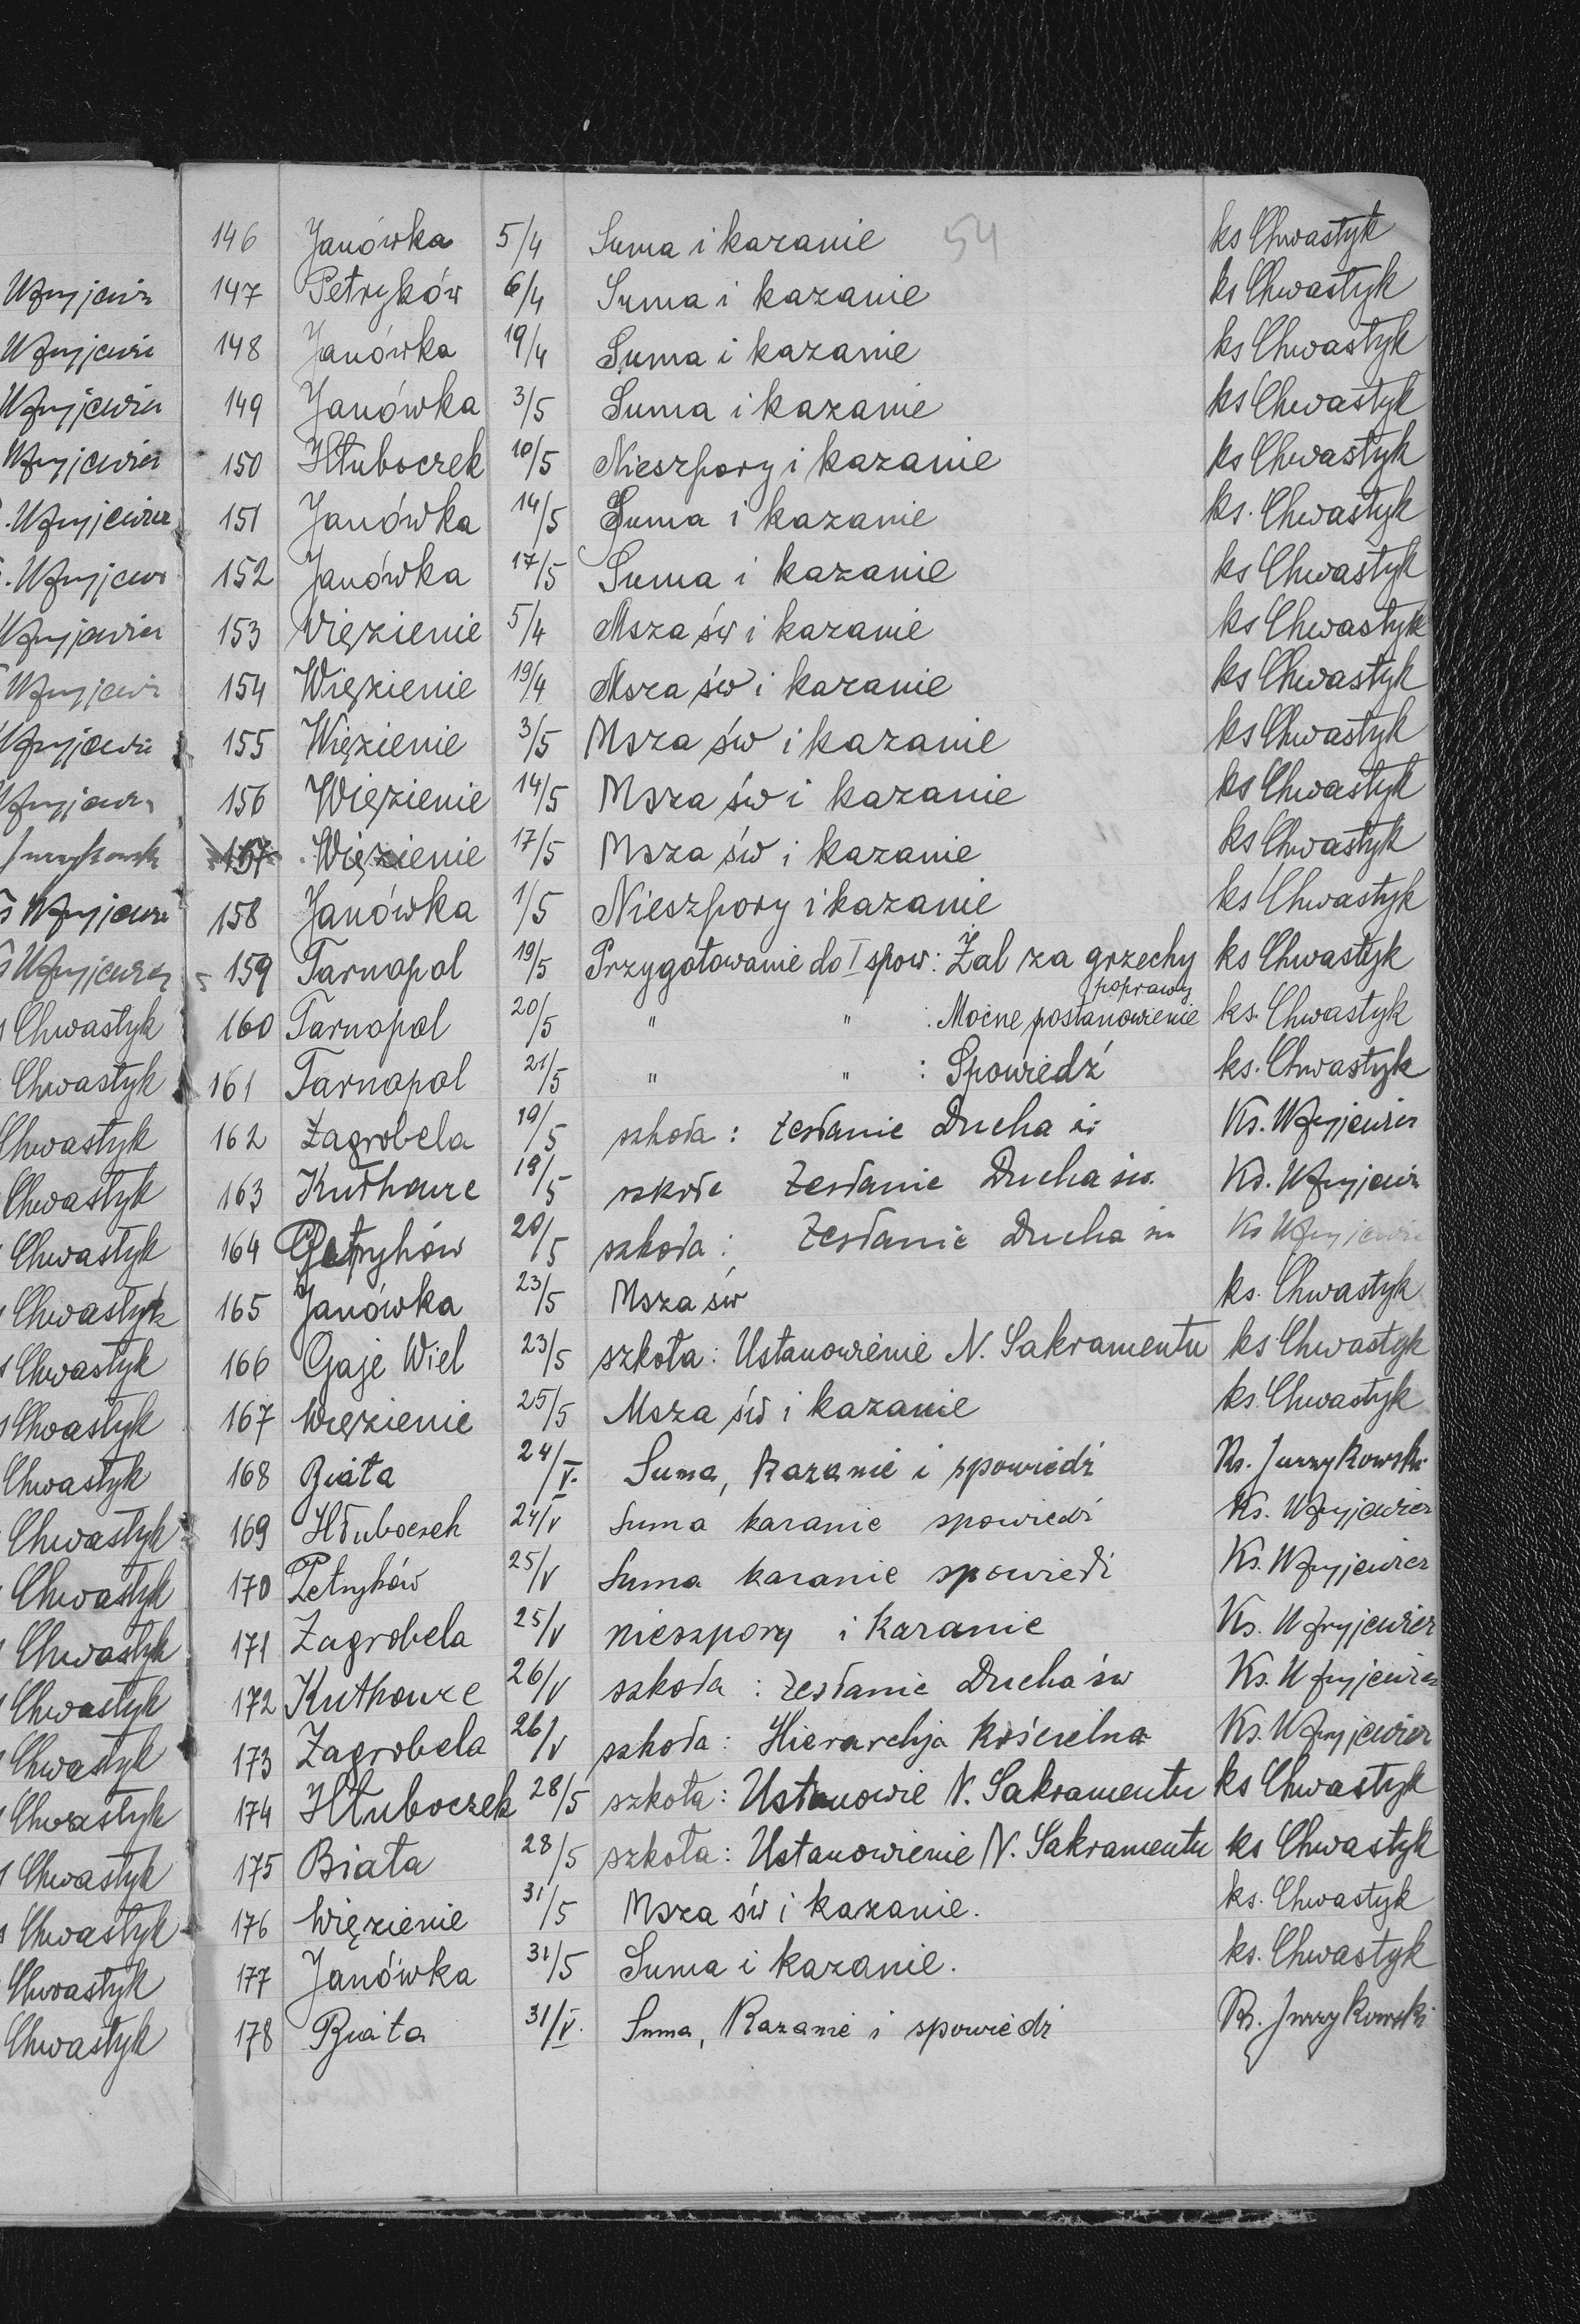 54
146 Janówka 5/4 Suma i kazanie ks Chwastyk
147 Petryków 6/4 Suma i kazanie ks Chwastyk
148 Janówka 19/4 Suma i kazanie ks Chwastyk
149 Janówka 3/5 Suma i kazanie ks Chwastyk
150 Hłuboczek 10/5 Nieszpory i kazanie ks Chwastyk
151 Janówka 14/5 Suma i kazanie ks. Chwastyk
152 Janówka 17/5 Suma i kazanie ks Chwastyk
153 Więzienie 5/4 Msza św i kazanie ks Chwastyk
154 Więzienie 19/4 Msza św i kazanie ks Chwastyk
155 Więzienie 3/5 Msza św i kazanie ks Chwastyk
156 Więzienie 14/5 Msza św i kazanie ks Chwastyk
157 Więzienie 17/5 Msza św i kazanie ks Chwastyk
158 Janówka 1/5 Nieszpory i kazanie ks Chwastyk
159 Tarnopol 19/5 Przygotowanie do I spow: Żal za grzechy ks Chwastyk
poprawy
160 Tarnopol 20/5 " " : Mocne postanowienie ks. Chwastyk
161 Tarnopol 21/5 " " : Spowiedź ks. Chwastyk
162 Zagrobela 19/5 szkoła: Zesłanie Ducha św Ks.
163 Kutkowce 19/5 szkoła Zesłanie Ducha św. Ks.
164 Petryków 20/5 szkoła: Zesłanie Ducha św Ks
165 Janówka 23/5 Msza św ks. Chwastyk
166 Gaje Wiel 23/5 szkoła: Ustanowienie N. Sakramentu ks Chwastyk
167 Więzienie 25/5 Msza św i kazanie ks. Chwastyk
168 Biała 24/V. Suma, Kazanie i spowiedź Ks. Jurzykowski
169 Hłuboczek 24/V Suma kazanie spowiedź Ks.
170 Petryków 25/V Suma kazanie spowiedź Ks.
171 Zagrobela 25/V nieszpory i kazanie Ks.
172 Kutkowce 26/V szkoła: Zesłanie Ducha św Ks.
173 Zagrobela 26/V szkoła: Hierarchja Kościelna Ks.
174 Hłuboczek 28/5 szkoła: Ustanowie N. Sakramentu ks Chwastyk
175 Biała 28/5 szkoła: Ustanowienie N. Sakramentu ks Chwastyk
176 Więzienie 31/5 Msza św i kazanie. ks. Chwastyk
177 Janówka 31/5 Suma i kazanie. ks. Chwastyk
178 Biała 31/V. Suma, Kazanie i spowiedź Ks. Jurzykowski
Chwastyk
Chwastyk
Chwastyk
Chwastyk
Chwastyk
Chwastyk
Chwastyk
Chwastyk
Chwastyk
Chwastyk
Chwastyk
Chwastyk
Chwastyk
Chwastyk
Chwastyk
Chwastyk
Chwastyk
Chwastyk
Chwastyk